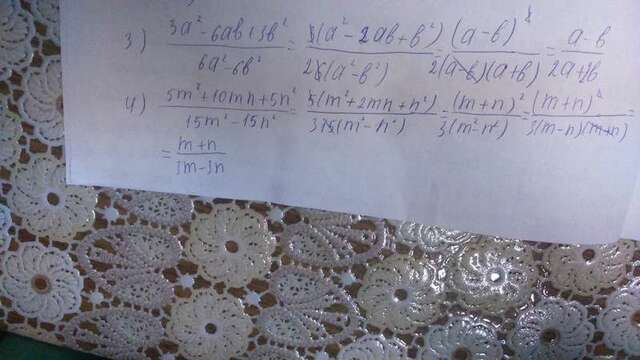 3) (3a² - 6ab + 3b²)/(6a² - 6b²) = 3(a² - 2ab + b²)/26(a² - b²) = (a - b)²/2(a - b)(a + b) = (a - b)/(2a + 2b)
4) (5m² + 10mn + 5n²)/(15m² - 15n²) = 5(m² + 2mn + n²)/315(m² - n²) = (m + n)²/3(m² - n²) = (m + n)²/3(m - n)(m + n) =
= (m + n)/(3m - 3n)